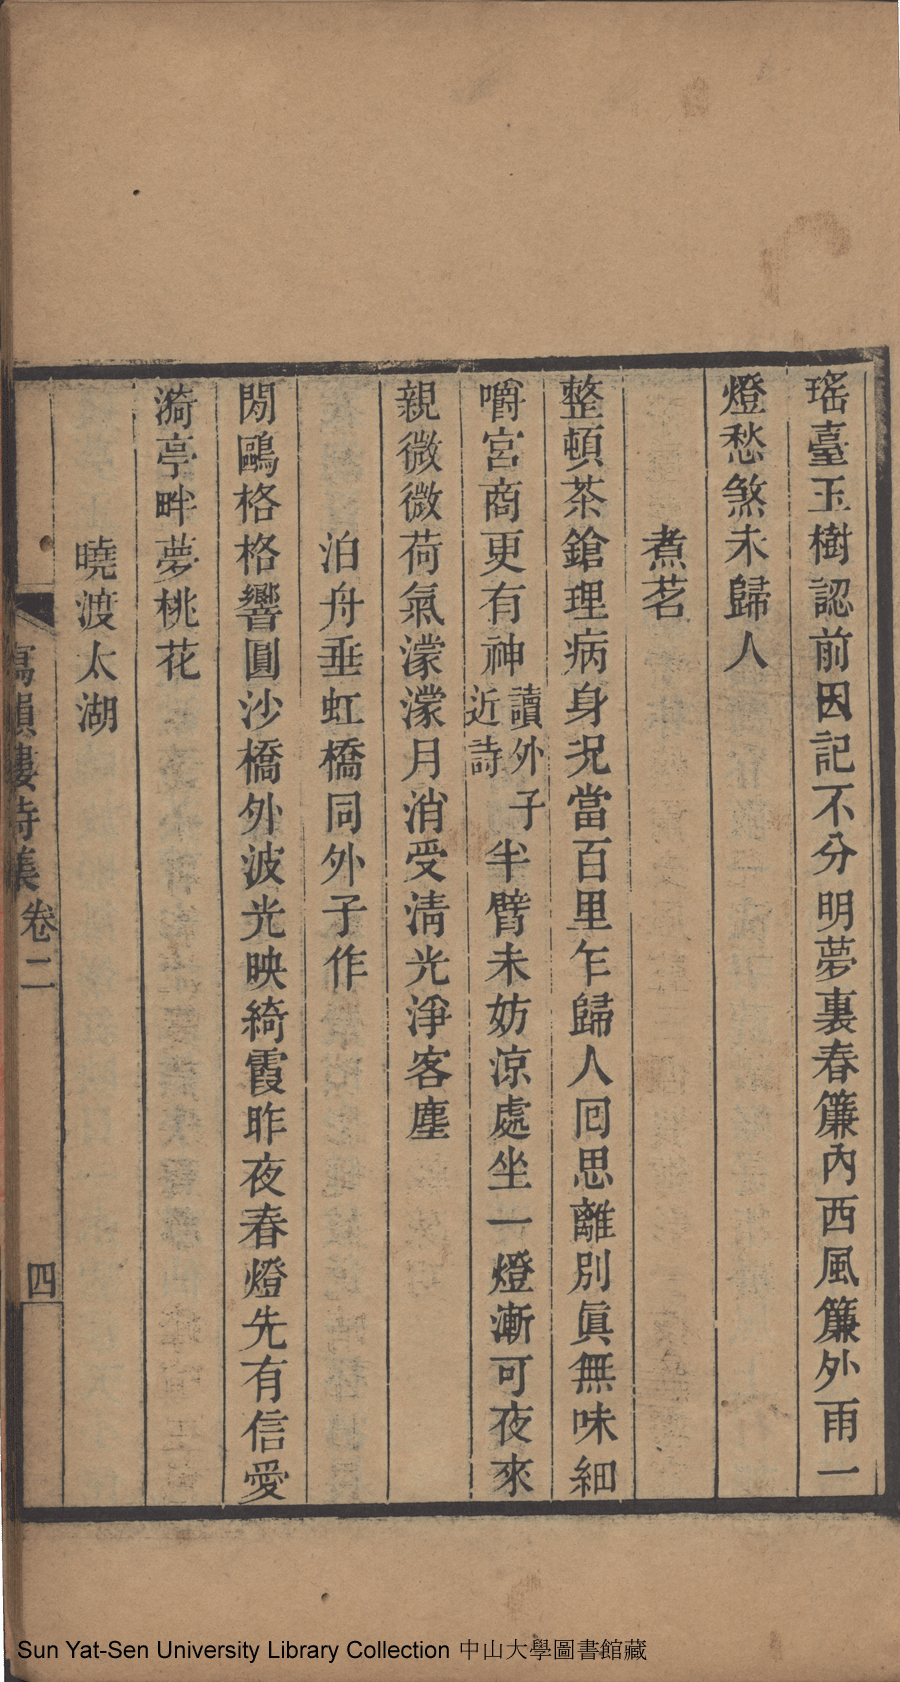 瑤臺玉樹認前因記不分明夢裏春簾內西風簾外雨一
燈愁煞未歸人
煮茗
整頓茶鎗理病身况當百里乍歸人囘思離別眞無味細
嚼宮商更有神讀外子近詩半臂未妨凉處坐一燈漸可夜來
親微微荷氣濛濛月消受淸光淨客塵
泊舟垂虹橋同外子作
閒鷗格格響圓沙橋外波光映綺霞昨夜春燈先有信愛
漪亭畔夢桃花
曉渡太湖
寫韻樓詩集 卷二 四
Sun Yat-Sen University Library Collection 中山大學圖書館藏